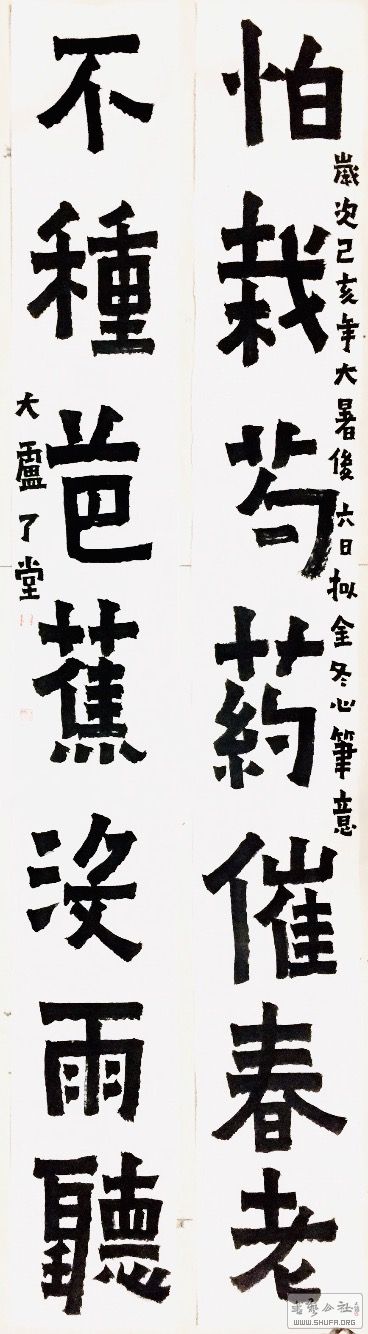 怕栽芍葯催春老
歲次己亥年大暑後六日拟金冬心筆意
不種芭蕉沒雨聽
大盧了堂
書藝公社
WWW.SHUFA.ORG